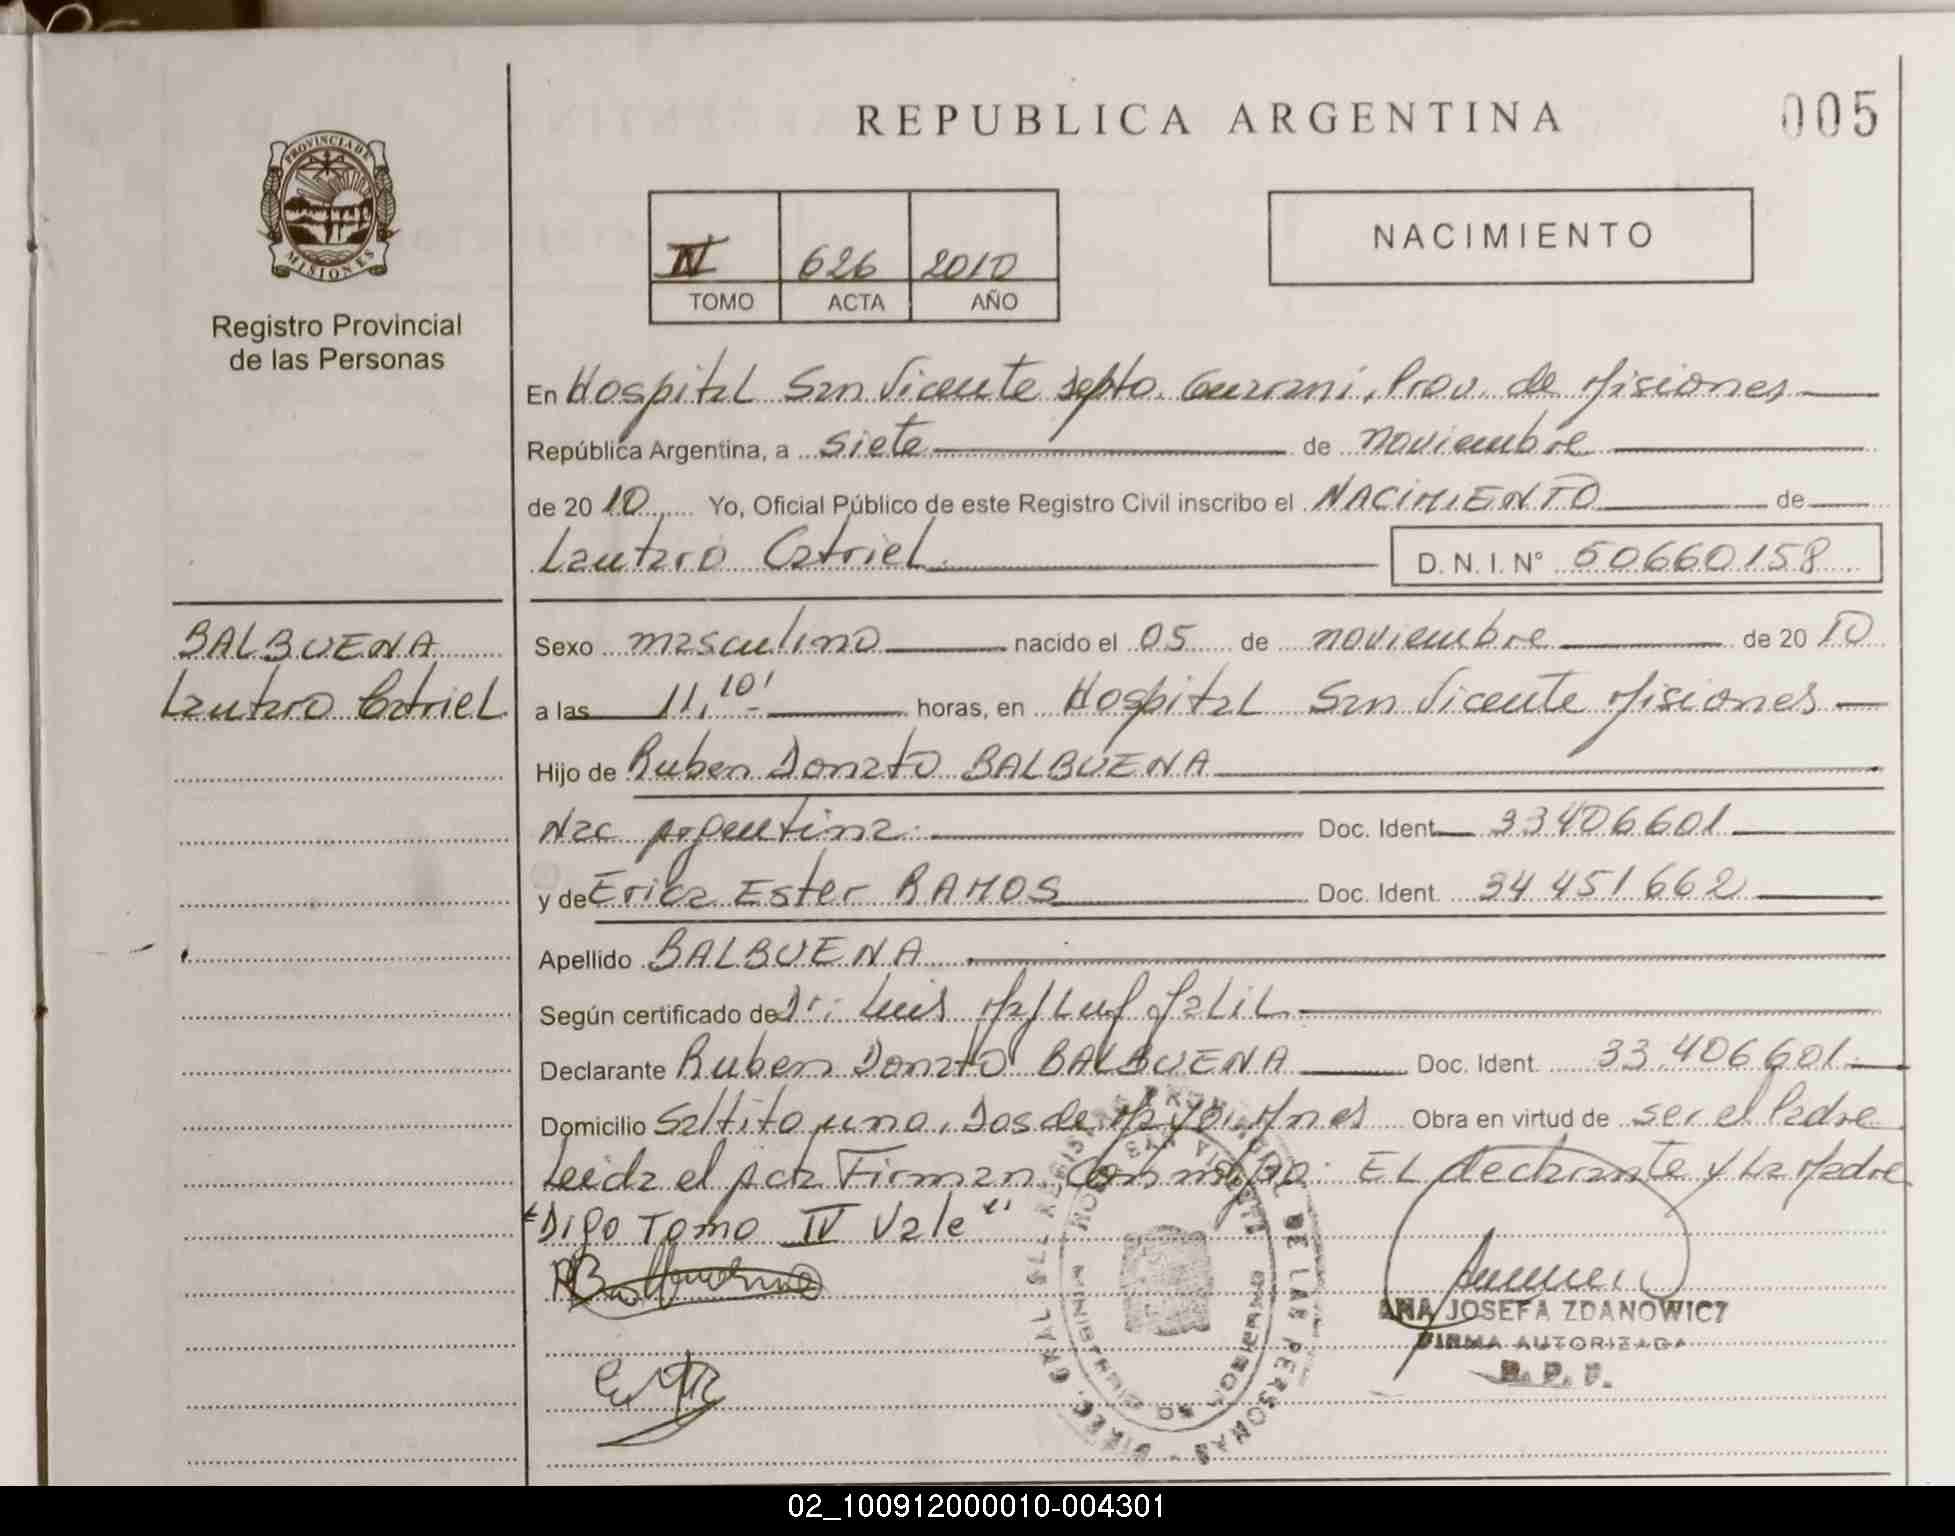 REPUBLICA ARGENTINA
005
PROVINCIA DE
MISIONES
Registro Provincial
de las Personas
IV 626 2010
TOMO ACTA AÑO
NACIMIENTO
En Hospital San Vicente Depto. Guarani, Prov. de Misiones
República Argentina, a siete de noviembre
de 2010 Yo, Oficial Público de este Registro Civil inscribo el NACIMIENTO de
Lautaro Catriel
D. N. I. N° 50660158
BALBUENA
Lautaro Catriel
Sexo masculino nacido el 05 de noviembre de 2010
a las 11,10' horas, en Hospital San Vicente Misiones
Hijo de Ruben Donato BALBUENA
Nac Argentina. Doc. Ident. 33406601
y de Erica Ester RAMOS Doc. Ident. 34.451.662
Apellido BALBUENA
Según certificado de Dr. Luis Malil
Declarante Ruben Donato BALBUENA Doc. Ident. 33.406.601
Domicilio Saltito uno, Dos de Mayo, Mnes Obra en virtud de ser el Padre
Leida el Acta Firman Conmigo: EL declarante y La Madre
"Digo Tomo IV Vale"
DE LAS PERSONAS
ANA JOSEFA ZDANOWICZ
FIRMA AUTORIZADA
R. P. P.
02_100912000010-004301